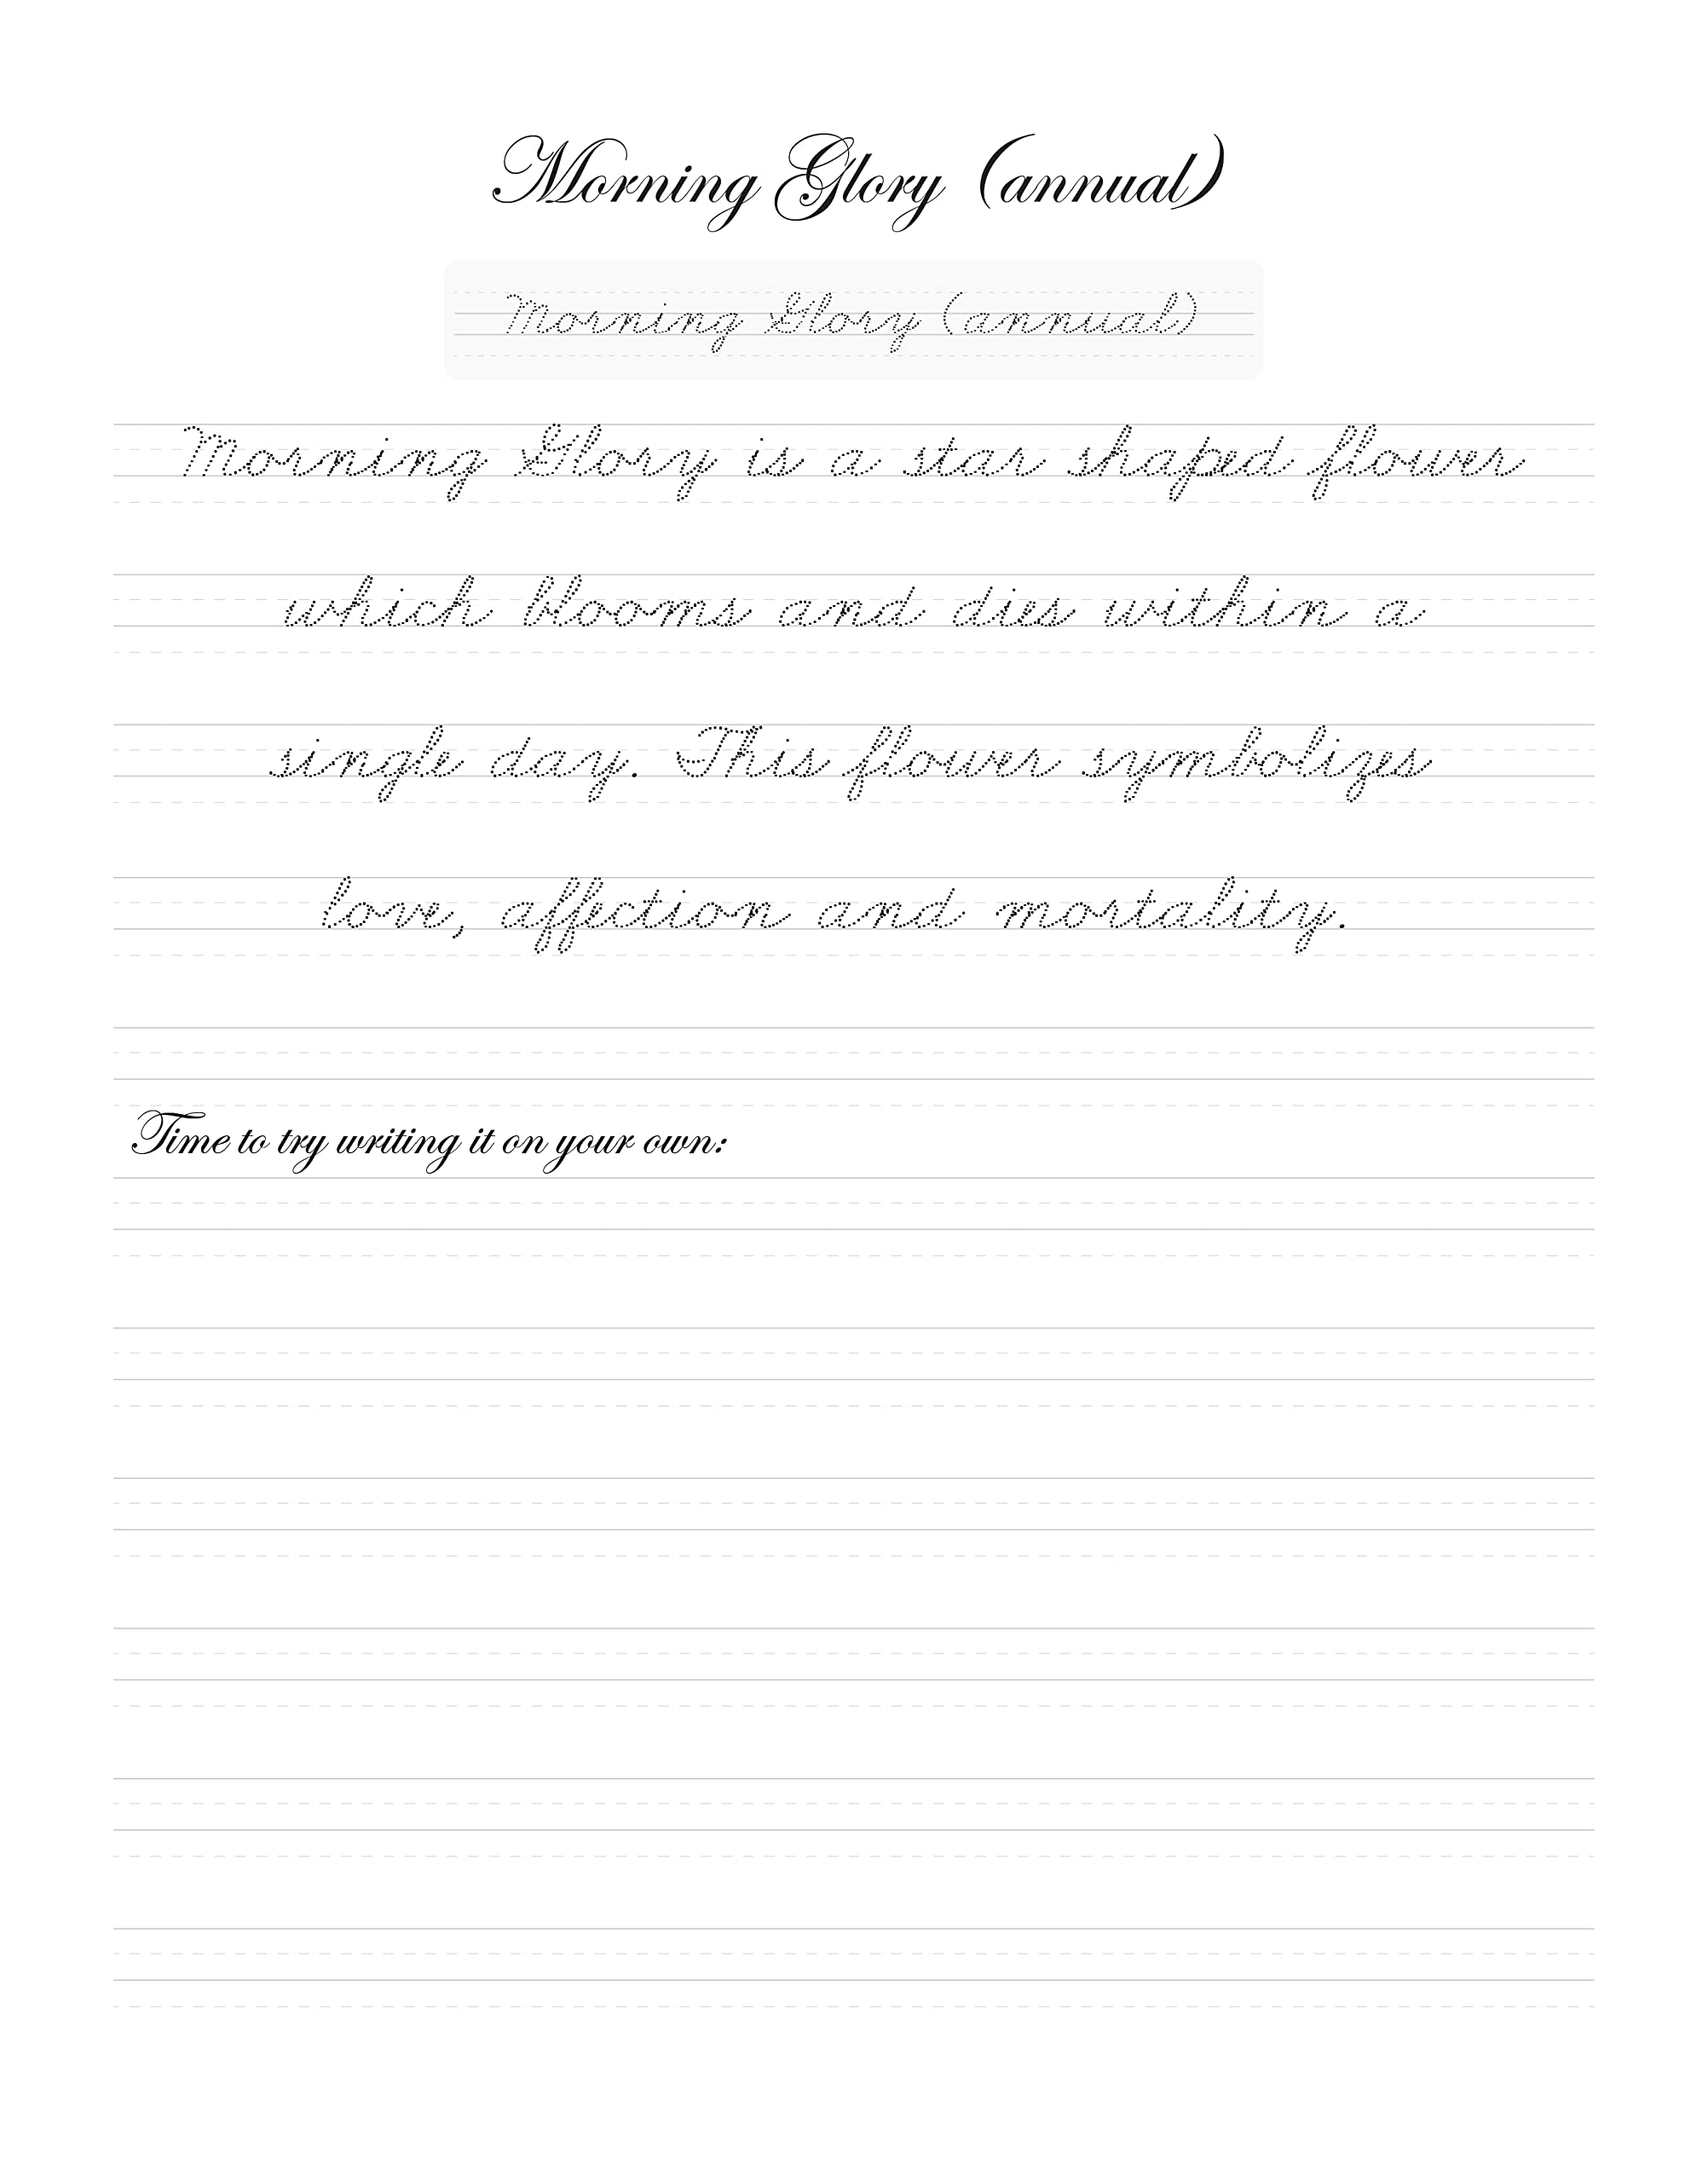 Morning Glory (annual)
Morning Glory (annual)
Morning Glory is a star shaped flower
which blooms and dies within a
single day. This flower symbolizes
love, affection and mortality.
Time to try writing it on your own: